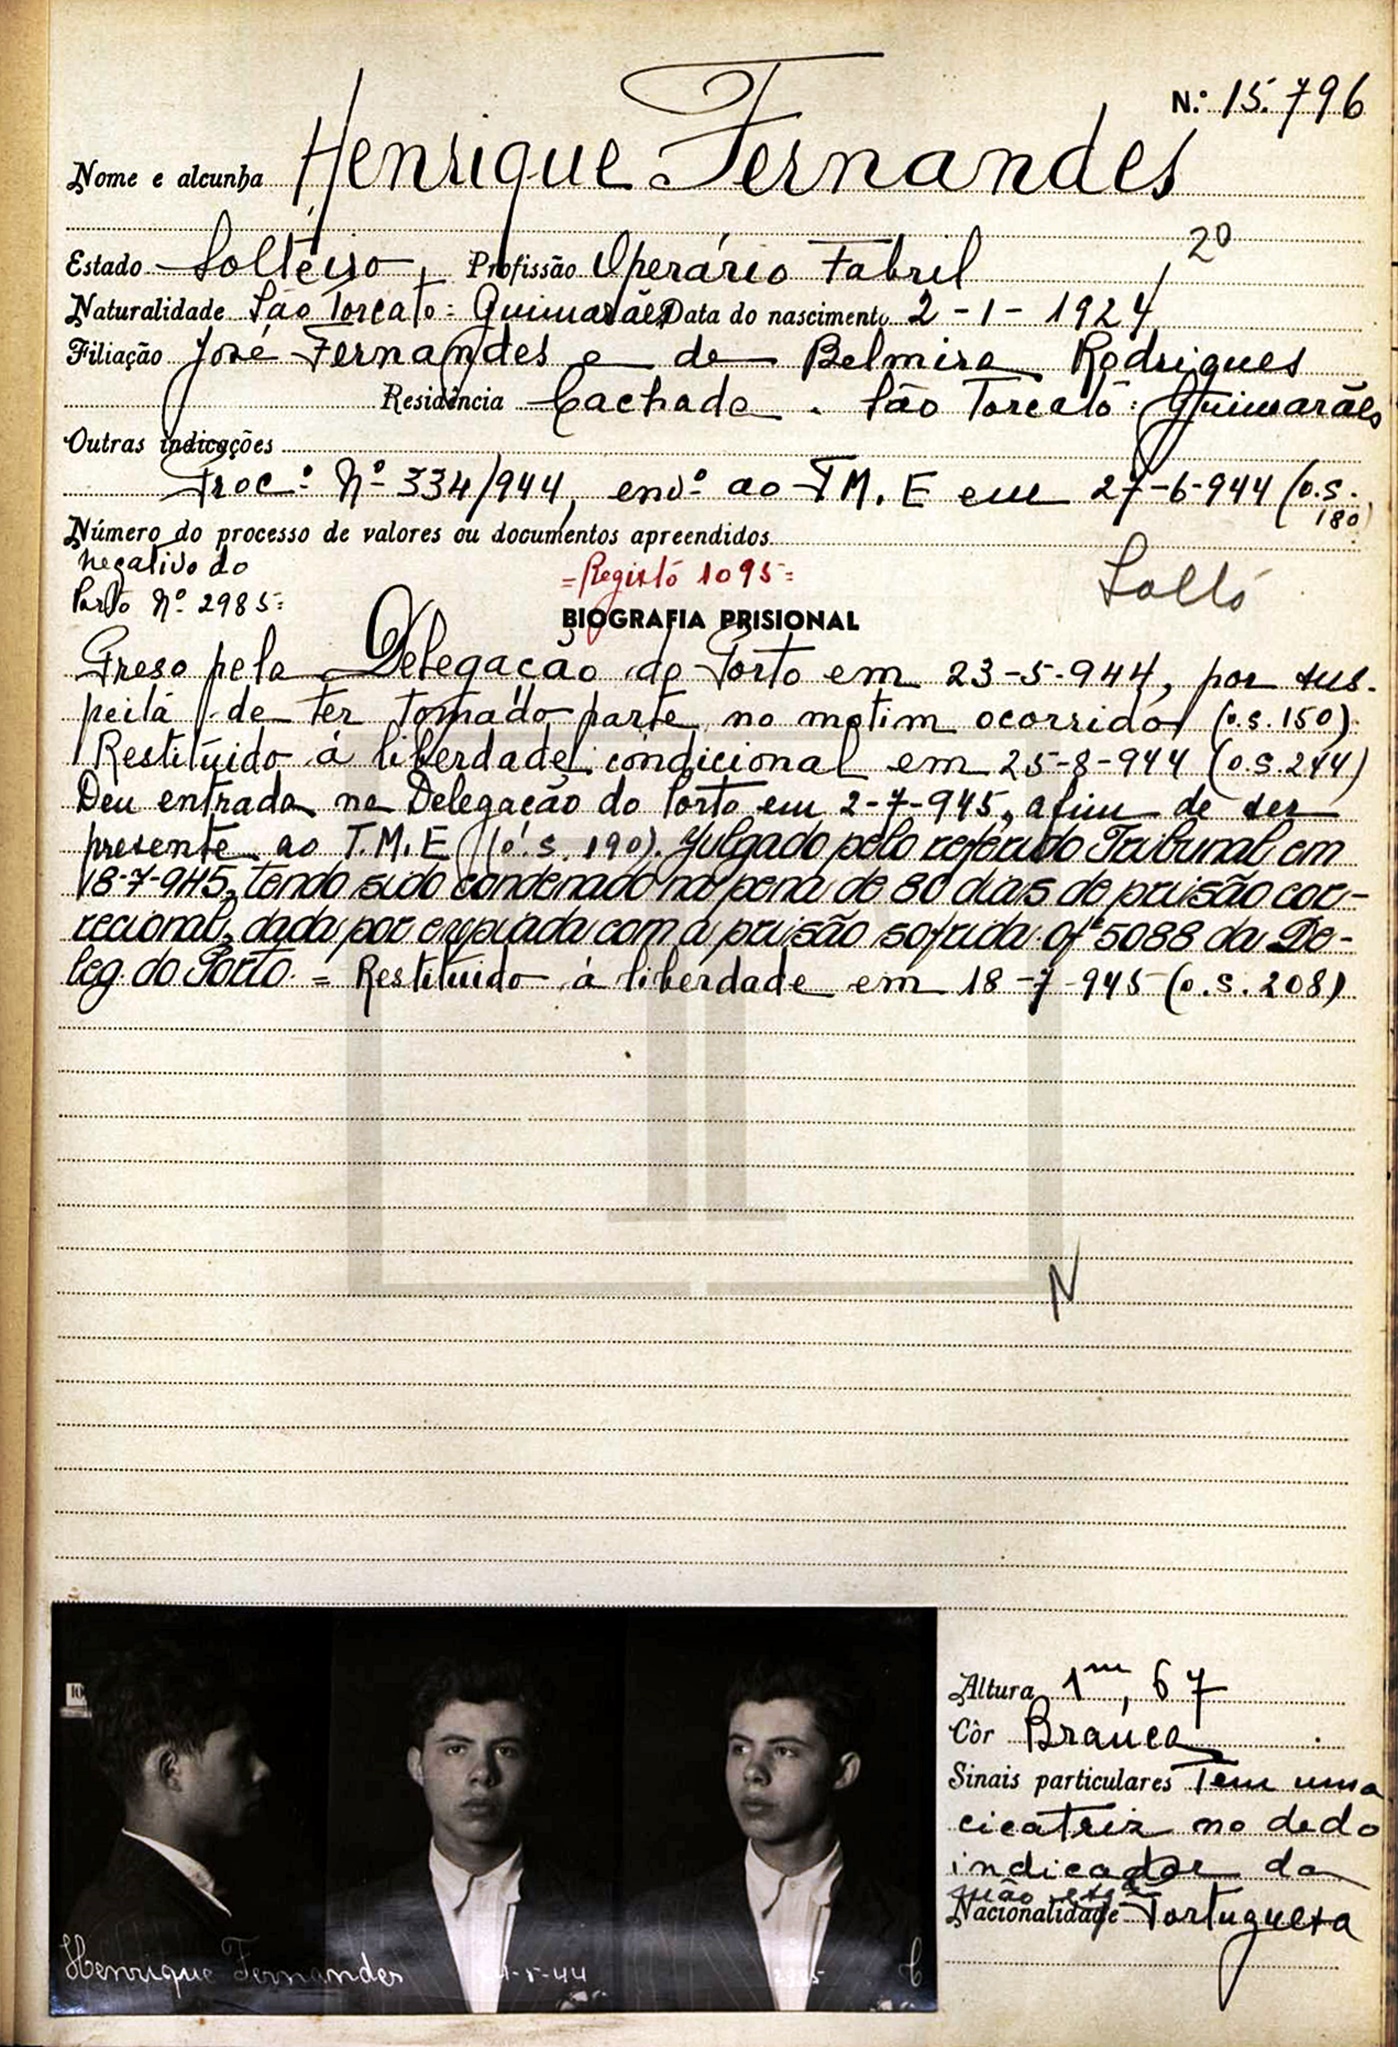 N.º 15.796
Nome e alcunha Henrique Fernandes
20
Estado Solteiro, Profissão Operário Fabril
Naturalidade São Torcato = Guimarães Data do nascimento 2-1-1924
Filiação José Fernandes e de Belmira Rodrigues
Residência Cachada. São Torcato: Guimarães
Outras indicações
Proc.º Nº 334/944, envº ao T.M.E em 27-6-944 (o.s.
180)
Número do processo de valores ou documentos apreendidos
negativo do
Porto Nº 2985=
=Registo 1095=
Solto
BIOGRAFIA PRISIONAL
Preso pela Delegação do Porto em 23-5-944, por sus-
peita de ter tomado parte no motim ocorrido (o.s.150).
Restituido á liberdade condicional em 25-8-944 (o.s.244)
Deu entrada na Delegação do Porto em 2-7-945, afim de ser
presente ao T.M.E (o.s. 190). Julgado pelo referido Tribunal em
18-7-945, tendo sido condenado na pena de 80 dias de prisão cor-
recional, dada por expiada com a prisão sofrida. Ofº 5088 da De-
leg. do Porto. = Restituido á liberdade em 18-7-945 (o.s. 208)
N
10
Altura 1m,67
Côr Branca
Sinais particulares Tem uma
cicatriz no dedo
indicador da
mão esqª
Nacionalidade Portuguesa
Henrique Fernandes
-5-44
2985